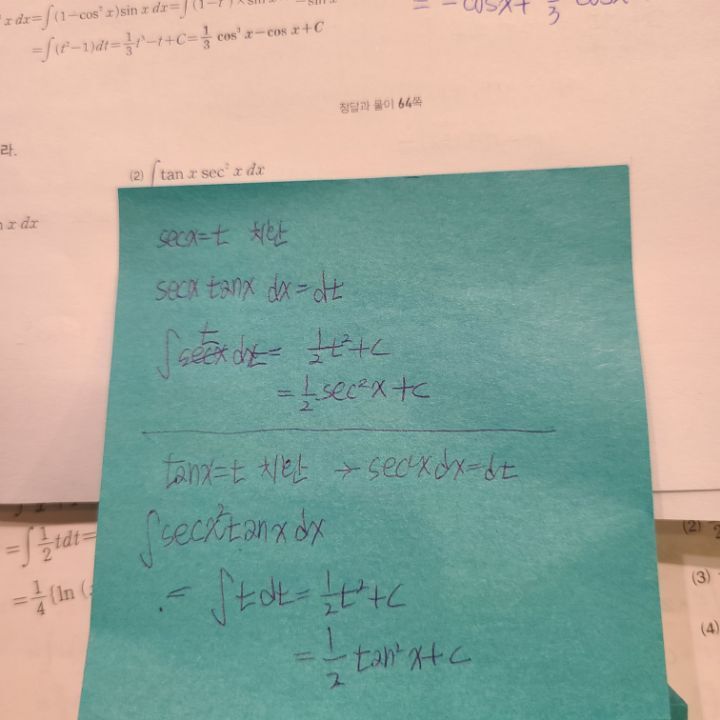 x dx=∫(1-cos² x)sin x dx=∫(1-
=∫(t²-1)dt=1/3 t³-t+C=1/3 cos³ x-cos x+C
= -cosx+ 1/3
정답과 풀이 64쪽
라.
(2) ∫tan x sec² x dx
x dx
secx=t 치환
secx tanx dx=dt
∫t dt= 1/2 t²+c
= 1/2 sec²x+c
tanx=t 치환 → sec²x dx=dt
∫secx² tanx dx
= ∫t dt= 1/2 t²+c
= 1/2 tan²x+c
=∫1/2 tdt=
=1/4{ln(
(2)
(3)
(4)